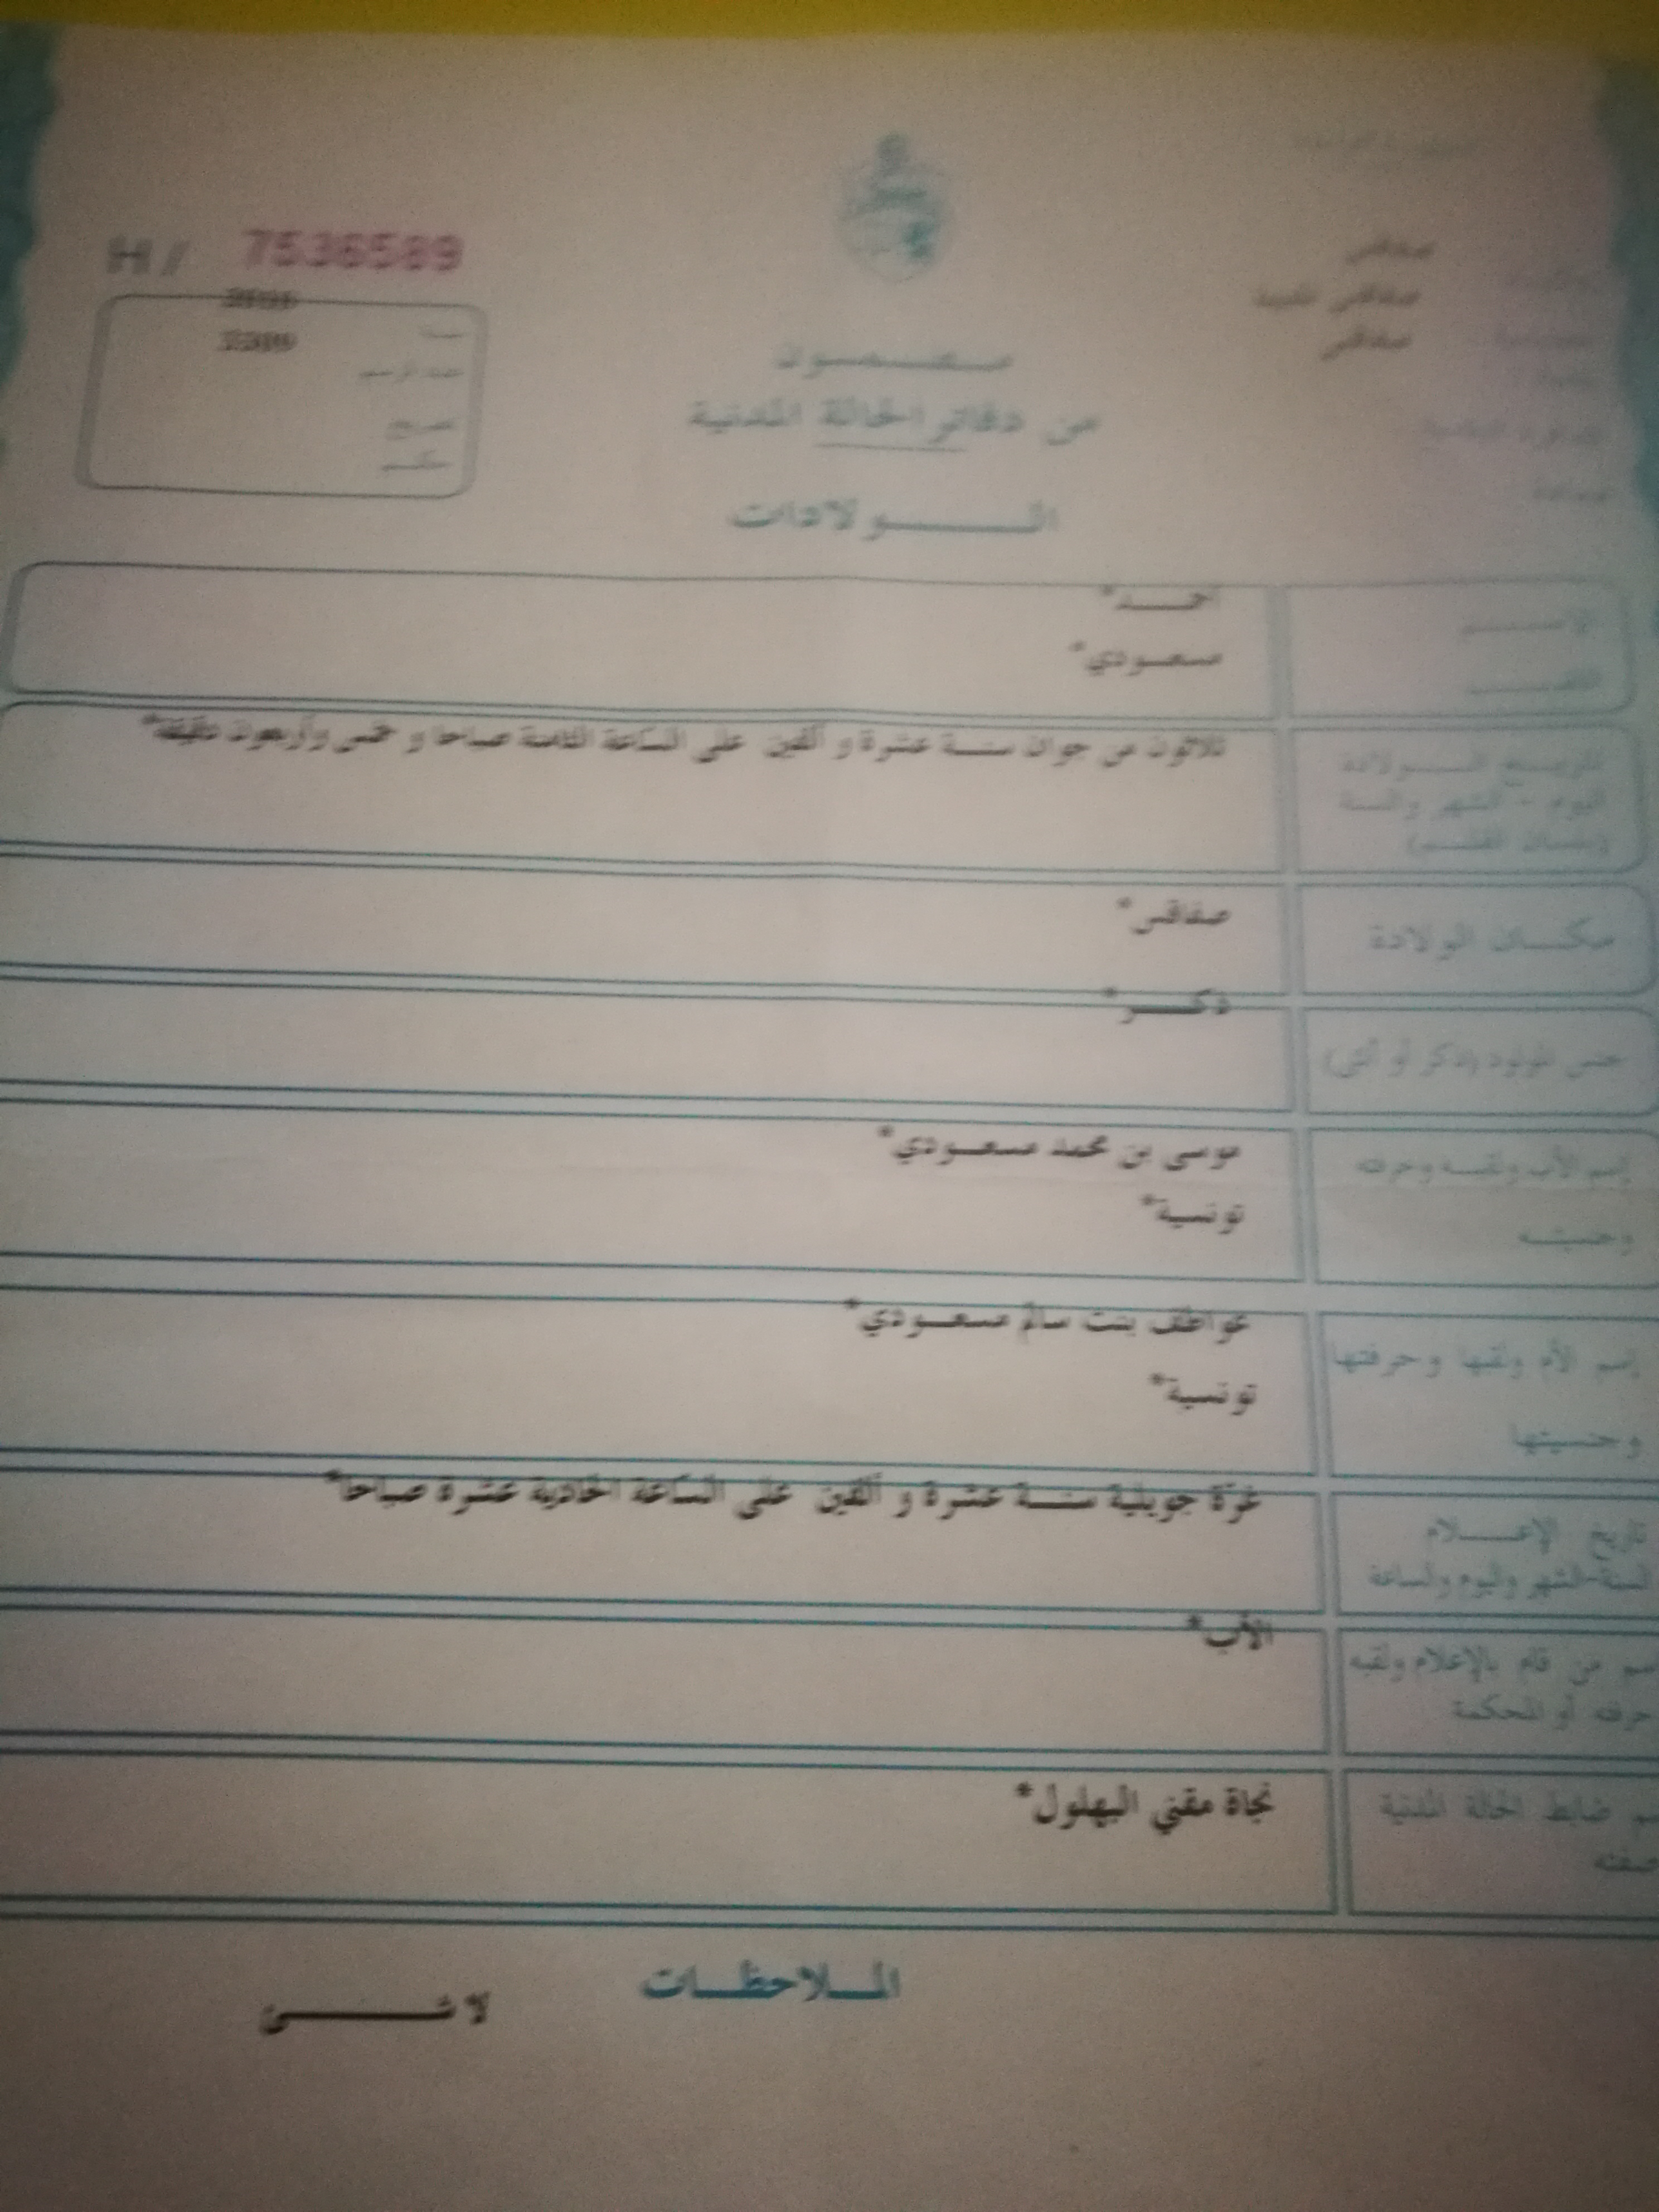 H/ 7536589
صفاقس
صفاقس
صفاقس
سنة
عدد الرسم
تصريح
حكم
مضمون
من دفاتر الحالة المدنية
الولادات
أحمد*
مسعودي*
تاريخ الولادة
اليوم - الشهر والسنة
(بلسان القلم)
ثلاثون من جوان سنة عشرة و ألفين على الساعة الثامنة صباحا و خمس وأربعون دقيقة*
مكان الولادة
صفاقس*
جنس المولود (ذكر أو أنثى)
ذكر*
إسم الأب ولقبه وحرفته
وجنسيته
موسى بن محمد مسعودي*
تونسية*
إسم الأم ولقبها وحرفتها
وجنسيتها
عواطف بنت سالم مسعودي*
تونسية*
تاريخ الإعلام
السنة-الشهر واليوم والساعة
غرة جويلية سنة عشرة و ألفين على الساعة الحادية عشرة صباحا*
من قام بالإعلام ولقبه
حرفته أو المحكمة
الأب*
ضابط الحالة المدنية
صفته
نجاة مقني البهلول*
الملاحظات
لا شئ